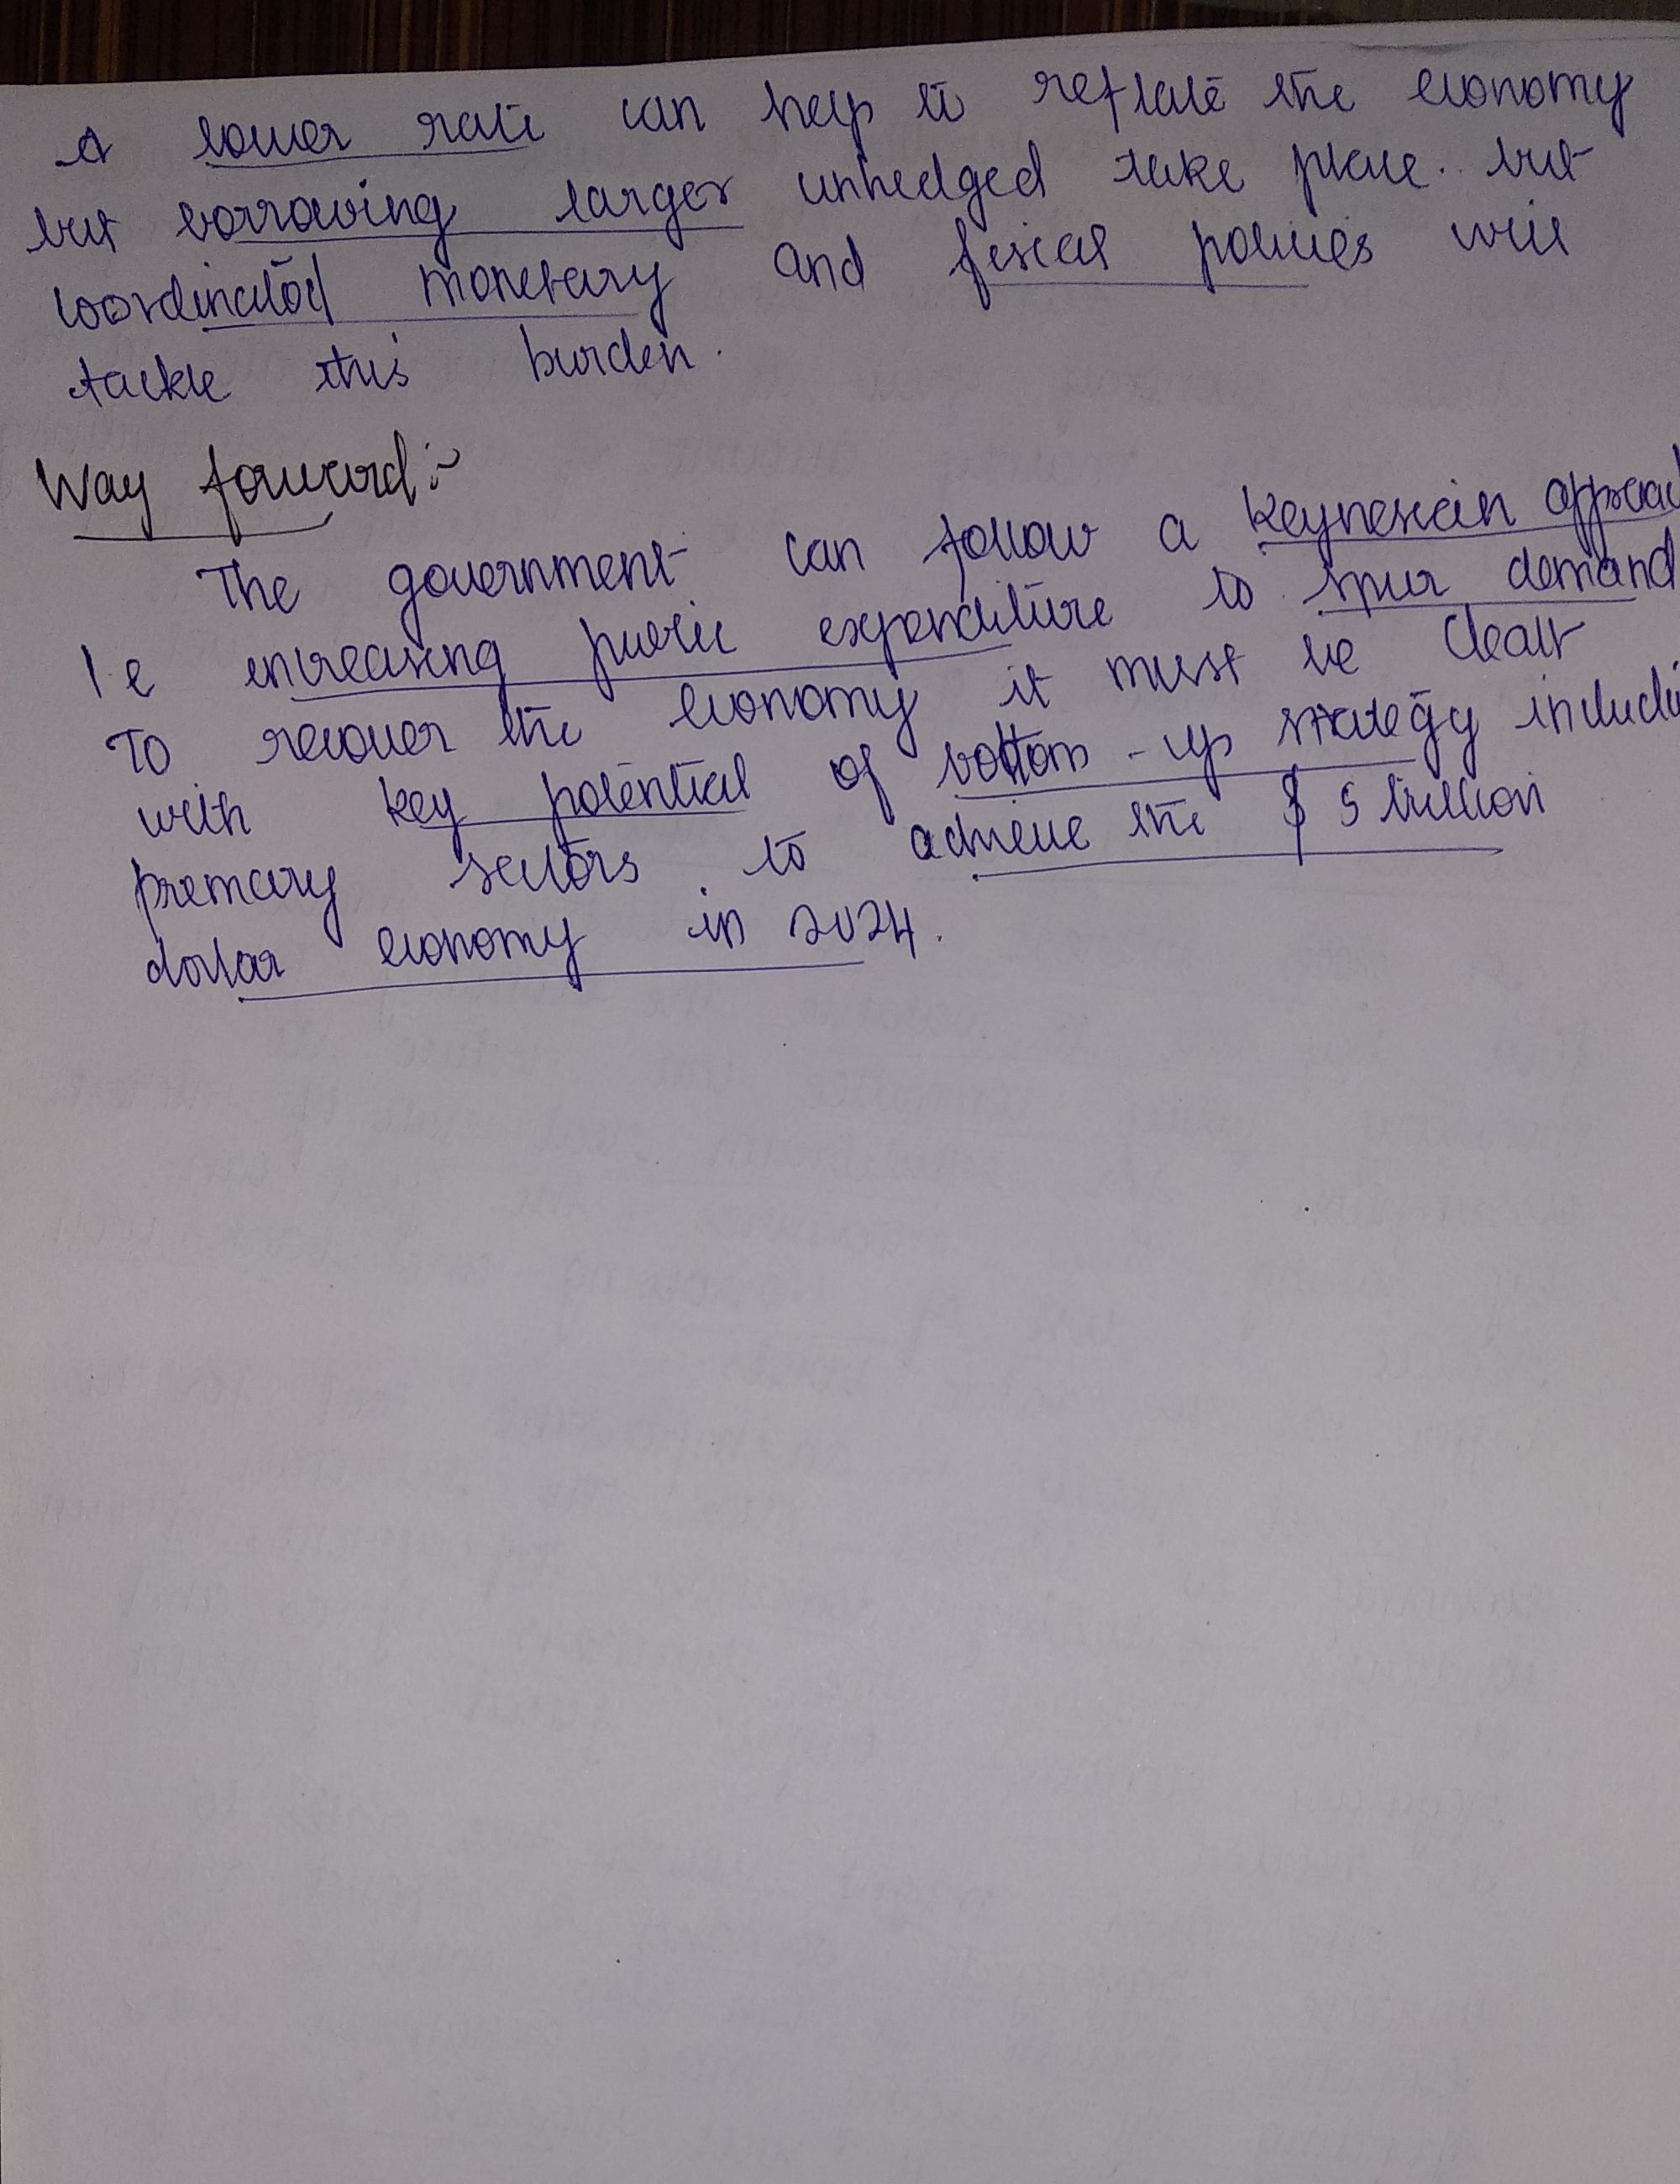 A lower rate can help to reflate the economy
but borrowing larger unhedged take place. but
coordinated monetary and fiscal policies will
tackle this burden.
Way forward:-
The government can follow a Keynesian approach
I.e increasing public expenditure to spur demand
To recover the economy it must be dealt
with key potential of bottom-up strategy includi
premary sectors to achieve the $ 5 trillion
dollar economy in 2024.